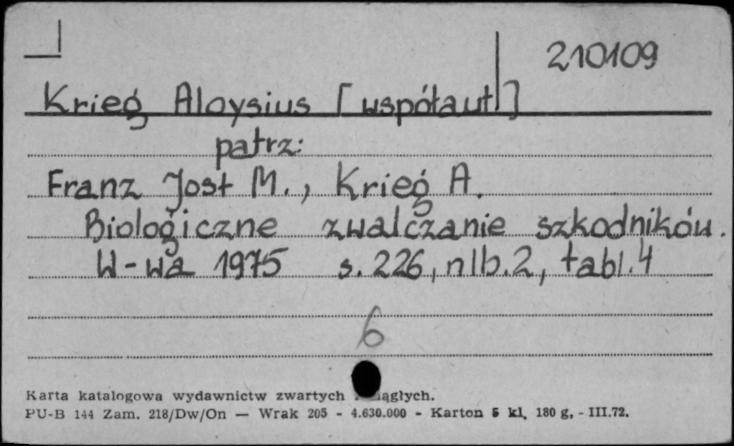 210109
Krieg Aloysius [współaut]
patrz:
Franz Jost M., Krieg A.
Biologiczne zwalczanie szkodników.
W-wa 1975 s. 226, nlb. 2, tabl. 4
6
Karta katalogowa wydawnictw zwartych
PU-B 144 Zam. 218/Dw/On — Wrak 205 - 4.630.000 - Karton 5 kl, 180 g, - III.72.